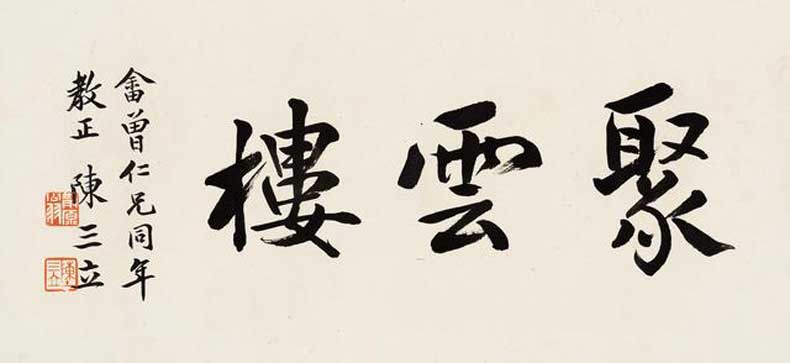 聚雲樓
畬曾仁兄同年
教正 陳三立